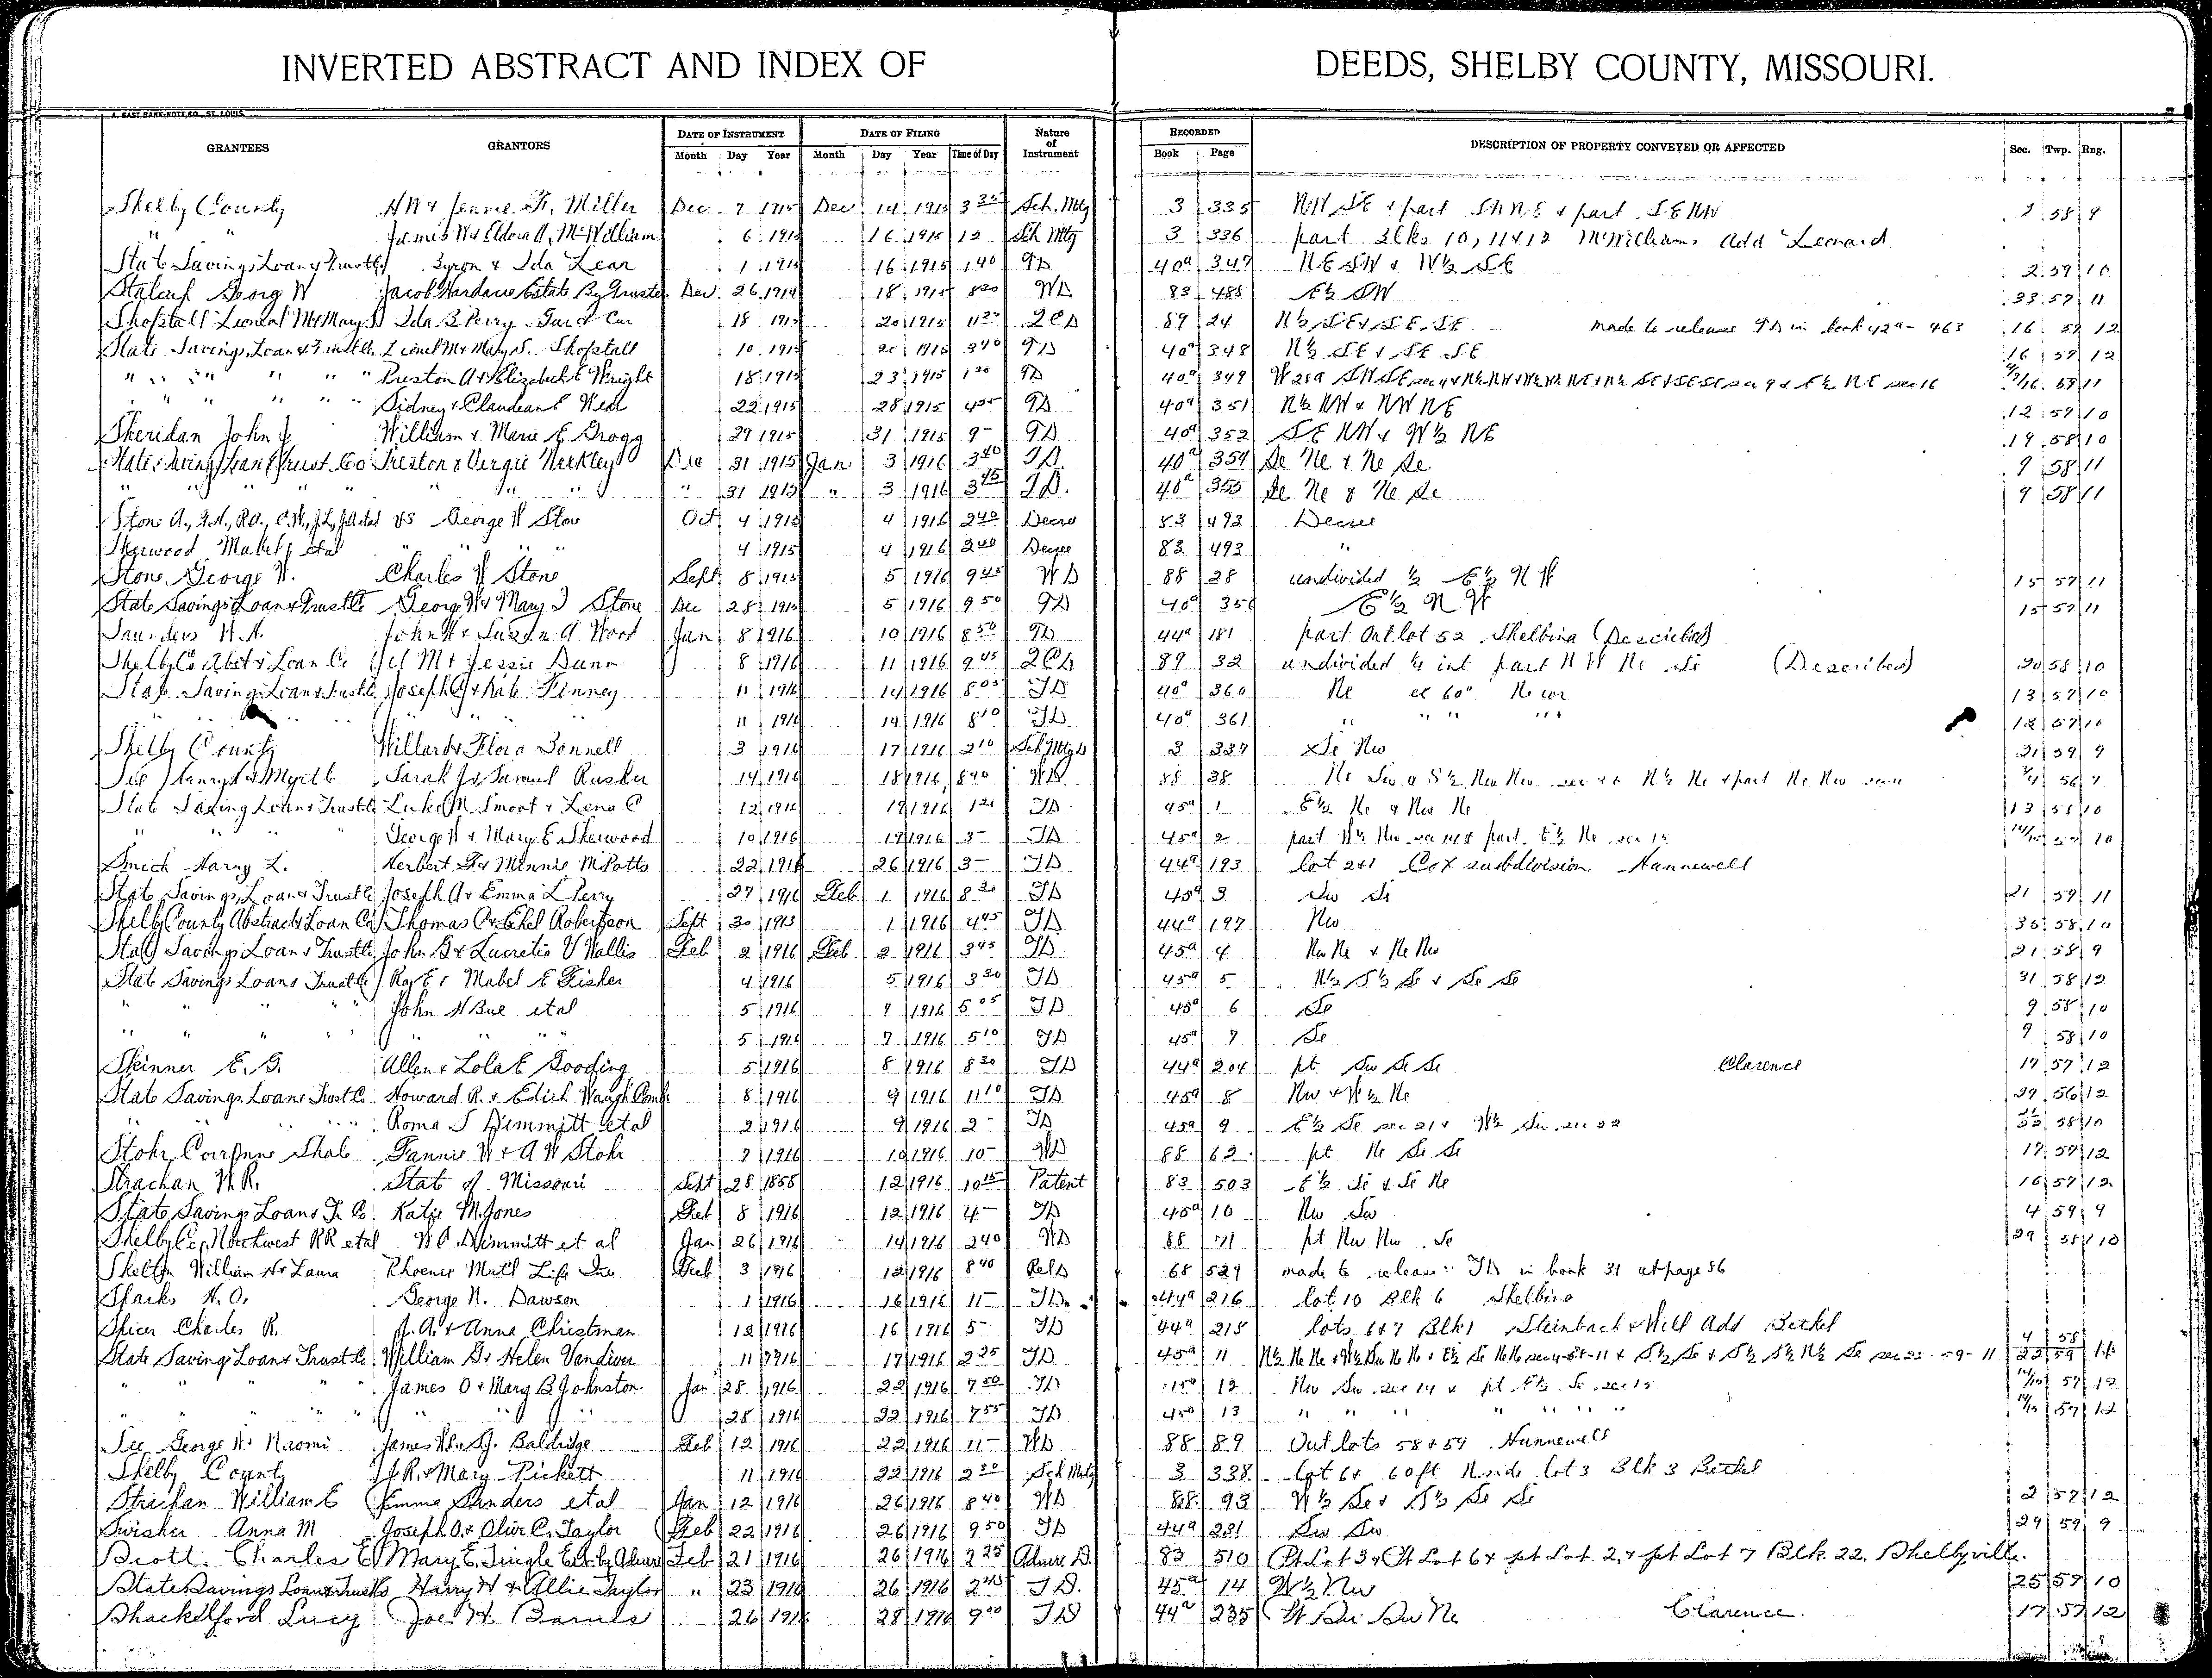 INVERTED ABSTRACT AND INDEX OF DEEDS, SHELBY COUNTY, MISSOURI.
A. GAST BANK NOTE CO., ST. LOUIS
GRANTEES GRANTORS DATE OF INSTRUMENT DATE OF FILING Nature of Instrument RECORDED DESCRIPTION OF PROPERTY CONVEYED OR AFFECTED Sec. Twp. Rng.
Month Day Year Month Day Year Time of Day Book Page
Shelby County HW & Jennie F. Miller Dec 7 1915 Dec 14 1915 3 Sch. Mtg 3 335 NW SE & part SW NE & part SE NW 2 58 9
" " James W & Eldora A. McWilliam 6 1915 16 1915 12 Sch Mtg 3 336 part Blks 10, 11 & 12 McWilliams Add Leonard
State Savings Loan & Trust Co Byron & Ida Lear 1 1915 16 1915 1 40 TD 40a 347 NE SW & W½ SE 2 59 10
Stalcup Georg W Jacob Hardacre Estate By Trustee Dec. 26 1914 18 1915 8 30 WD 83 488 E½ SW 33 57 11
Shopstall Leonal M & Mary S Ida B Perry Gard Cur 18 1915 20 1915 11 QCD 89 24 N½ SE & SE SE made to release TD in book 42a - 463 16 59 12
State Savings, Loan & Trust Co. Lionel M & Mary S. Shopstall 10 1915 20 1915 3 40 TD 40a 348 N½ SE & SE SE 16 59 12
" " " " " Preston A & Elizabeth E Wright 18 1915 23 1915 1 30 TD 40a 349 59 11
" " " " " Sidney & Claudean E West 22 1915 28 1915 4 TD 40a 351 N½ NW & NW NE 12 59 10
Sheridan John J. William & Marie E Gragg 29 1915 31 1915 9 - TD 40a 352 SE NW & W½ NE 19 58 10
State Saving Loan & Trust Co Preston & Vergie Markley Dec 31 1915 Jan 3 1916 3 40 TD. 40a 354 Se Ne & Ne Se 9 58 11
" " " " " " " 31 1915 " 3 1916 3 45 TD. 40a 355 Se Ne & Ne Se 9 58 11
Stone etal VS George W Stone Oct 4 1915 4 1916 2 40 Decree 83 493 Decree
Sherwood Mabel, etal " " " 4 1915 4 1916 2 40 Decree 83 493 "
Stone George W. Charles W Stone Sept 8 1915 5 1916 9 45 WD 88 28 undivided ½ E½ N W 15 57 11
State Savings Loan & Trust Co George W & Mary J Stone Dec 28 1915 5 1916 9 50 TD 40a 356 E½ N W 15 57 11
Saunders W.H. John H & Susan A. Wood Jan 8 1916 10 1916 8 50 TD 44a 181 part Out lot 52 Shelbina (Described)
Shelby Co Abst & Loan Co M & Jessie Dunn 8 1916 11 1916 9 45 QCD 89 32 undivided ¼ int part N W Ne Se (Described) 20 58 10
State Savings Loan & Trust Co Joseph & Kate Finney 11 1916 14 1916 8 05 TD 40a 360 Ne ex 60a Ne cor 13 57 10
" " " " " 11 1916 14 1916 8 10 TD 40a 361 " " " " 57 10
Shelby County Willard & Flora Bonnell 3 1916 17 1916 2 10 Sch Mtg D 3 337 Se Nw 21 59 9
See Henry & Myrtle Sarah J & Samuel Rusher 14 1916 18 1916 8 40 WD 88 38 Ne Sw & S½ Nw Nw sec N½ Ne & part Ne Nw 56 9
State Saving Loan & Trust Co Luke M. Smoot & Lena C 12 1916 19 1916 1 20 TD 45a 1 E½ Ne & Nw Ne 13 58 10
" " " George W & Mary E Sherwood 10 1916 19 1916 3 - TD 45a 2 part W½ Nw sec 14 & part E½ Ne sec 15 14/15 57 10
Smick Harry L. Herbert F & Minnie M Potts 22 1916 26 1916 3 - TD 44a 193 lot 2 & 1 Cox subdivision Hunnewell
State Savings, Loan & Trust Co Joseph A & Emma L Perry 27 1916 Feb 1 1916 8 30 TD 45a 3 Sw Se 21 59 11
Shelby County Abstract & Loan Co Thomas C & Ethel Robertson Sept 30 1913 1 1916 4 45 TD 44a 197 Nw 36 58 10
State Savings Loan & Trust Co John G & Lucretia V Wallis Feb 2 1916 Feb 2 1916 3 45 TD 45a 4 Nw Ne & Ne Nw 21 58 9
State Savings Loan & Trust Co Ray E & Mabel E Fisher 4 1916 5 1916 3 30 TD 45a 5 N½ S½ Se & Se Se 31 58 12
" " " " John N Bue etal 5 1916 7 1916 5 05 TD 45a 6 Se 9 58 10
" " " " " " 5 1916 7 1916 5 10 TD 45a 7 Se 9 58 10
Skinner E. G. Allen & Lola E Gooding 5 1916 8 1916 8 30 TD 44a 204 pt Sw Se Se Clarence 17 57 12
State Savings Loan & Trust Co. Howard R. & Edith Waugh 8 1916 9 1916 11 10 TD 45a 8 Nw & W½ Ne 29 56 12
" " " " Roma S Dimmitt etal 2 1916 9 1916 2 - TD 45a 9 E½ Se sec 21 & W½ Sw sec 22 58 10
Stohr Corrinne Shale Fannie W & A W Stohr 7 1916 10 1916 10 - WD 88 62 pt Ne Se Se 17 57 12
Strachan W.R. State of Missouri Sept 28 1858 12 1916 10 15 Patent 83 503 E½ Se & Se Ne 16 57 12
State Savings Loan & Tr Co. Katie M. Jones Feb 8 1916 12 1916 4 - TD 45a 10 Nw Sw 4 59 9
Shelby Co, Northwest RR etal W.A. Dimmitt et al Jan 26 1916 14 1916 2 40 WD 88 71 pt Nw Nw Se 29 58 10
Shelton William H & Laura Phoenix Mut'l Life Ins Feb 3 1916 12 1916 8 40 Rel D 68 527 made to release TD in book 31 at page 86
Sparks H. O. George N. Dawson 1 1916 16 1916 11 - TD. 44a 216 lot 10 Blk 6 Shelbina
Spicer Charles R. J. A. & Anna Christman 12 1916 16 1916 5 - TD 44a 218 lots 6 & 7 Blk 1 Steinbach & Will Add Bethel
State Saving Loan & Trust Co William G & Helen Vandiver 11 1916 17 1916 2 25 TD 45a 11
" " " " James O & Mary B Johnston Jan 28 1916 22 1916 7 50 TD 45a 12 Nw Sw sec 14 & pt E½ Se sec 15 14/15 57 12
" " " " " " 28 1916 22 1916 7 55 TD 45a 13 " " " " " " " 14/15 57 12
See George W & Naomi James W & S.J. Baldridge Feb 12 1916 22 1916 11 - WD 88 89 Out lots 58 & 59 Hunnewell
Shelby County J R. & Mary Pickett 11 1916 22 1916 2 30 Sch Mtg 3 338 Lot 6 & 60 ft N side lot 3 Blk 3 Bethel
Strachan William E Emma Sanders etal Jan 12 1916 26 1916 8 40 WD 88 93 W½ Se & S½ Se Se 2 57 12
Swisher Anna M Joseph O. & Olive C. Taylor Feb 22 1916 26 1916 9 50 TD 44a 231 Sw Sw 29 59 9
Scott Charles E Mary E. Tingle Est by Admr Feb 21 1916 26 1916 2 25 Admr D. 83 510 Pt Lot 3 & Pt Lot 6 & pt Lot 2, & pt Lot 7 Blk. 22. Shelbyville.
State Savings Loan & Trust Co Harry H & Allie Taylor " 23 1916 26 1916 2 45 T D. 45a 14 W½ Nw 25 57 10
Shackelford Lucy Joe. H. Barnes 26 1916 28 1916 9 00 TD 44a 235 Pt Sw Sw Ne Clarence. 17 57 12